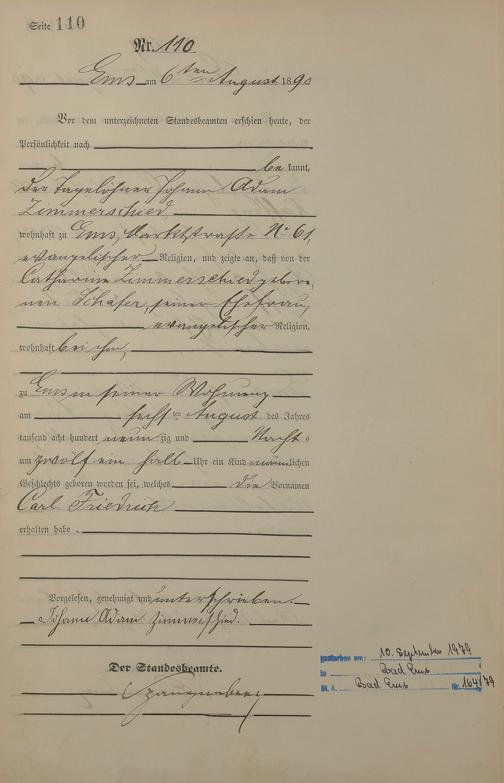 Seite 110
Nr. 110
Ems am 6ten August 1890
Vor dem unterzeichneten Standesbeamten erschien heute, der
Persönlichkeit nach
bekannt,
der Tagelöhner Johann Adam
Zimmerschied
wohnhaft zu Ems, Marktstraße No 61,
evangelischer Religion, und zeigte an, daß von der
Catharine Zimmerschied gebore
nen Schäfer, seiner Ehefrau,
evangelischer Religion,
wohnhaft bei ihm,
zu Ems in seiner Wohnung
am sechsten August des Jahres
tausend acht hundert neunzig und Nachts
um zwölf ein halb Uhr ein Kind männlichen
Geschlechts geboren worden sei, welches die Vornamen
Carl Friedrich
erhalten habe.
Vorgelesen, genehmigt und unterschrieben.
Johann Adam Zimmerschied.
Der Standesbeamte.
gestorben am: 10. September 1979
in Bad Ems
St. A. Bad Ems Nr. 164/79